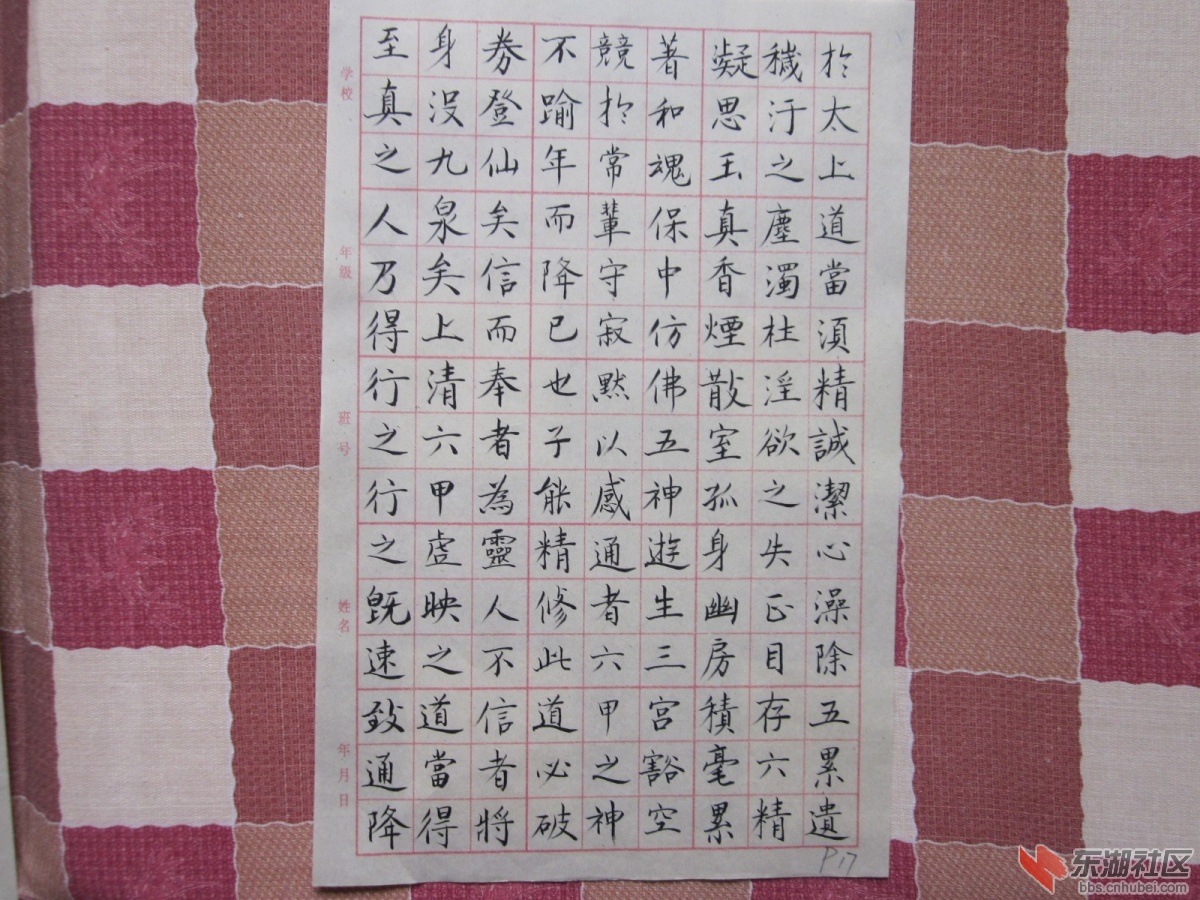 於太上道當須精誠潔心澡除五累遺
穢汙之塵濁杜淫欲之失正目存六精
凝思玉真香煙散室孤身幽房積毫累
著和魂保中仿佛五神遊生三宮豁空
競於常輩守寂默以感通者六甲之神
不踰年而降已也子能精修此道必破
券登仙矣信而奉者為靈人不信者將
身沒九泉矣上清六甲虛映之道當得
至真之人乃得行之行之既速致通降
学校
年级
班号
姓名
年月日
P.17
东湖社区
bbs.cnhubei.com